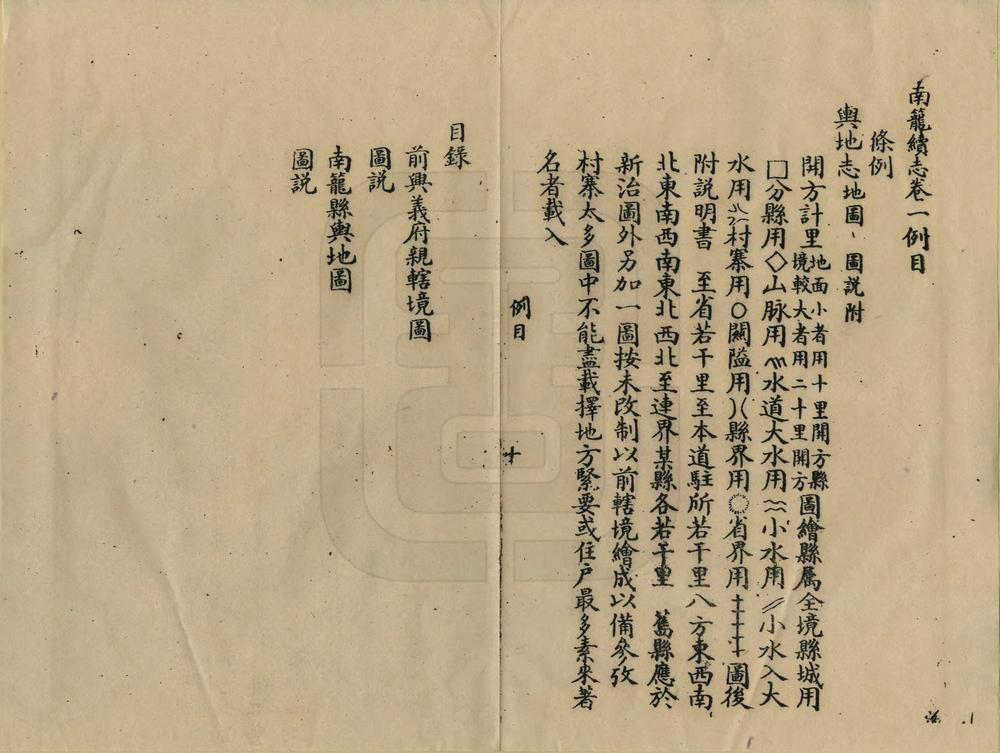 南籠續志卷一例目
條例
輿地志地圖、圖説附
開方計里地面小者用十里開方縣境較大者用二十里開方圖繪縣屬全境縣城用
□分縣用◇山脉用〃水道大水用≈小水用〃小水入大
水用村寨用○關隘用)(縣界用◌省界用++++圖後
附説明書　至省若干里至本道駐所若干里八方東西南
北東南西南東北西北至連界某縣各若干里　舊縣應於
新治圖外另加一圖按未改制以前轄境繪成以備參攷
村寨太多圖中不能盡載擇地方緊要或住户最多素來著
名者載入
例目
十
目錄
前興義府親轄境圖
圖説
南籠縣輿地圖
圖説